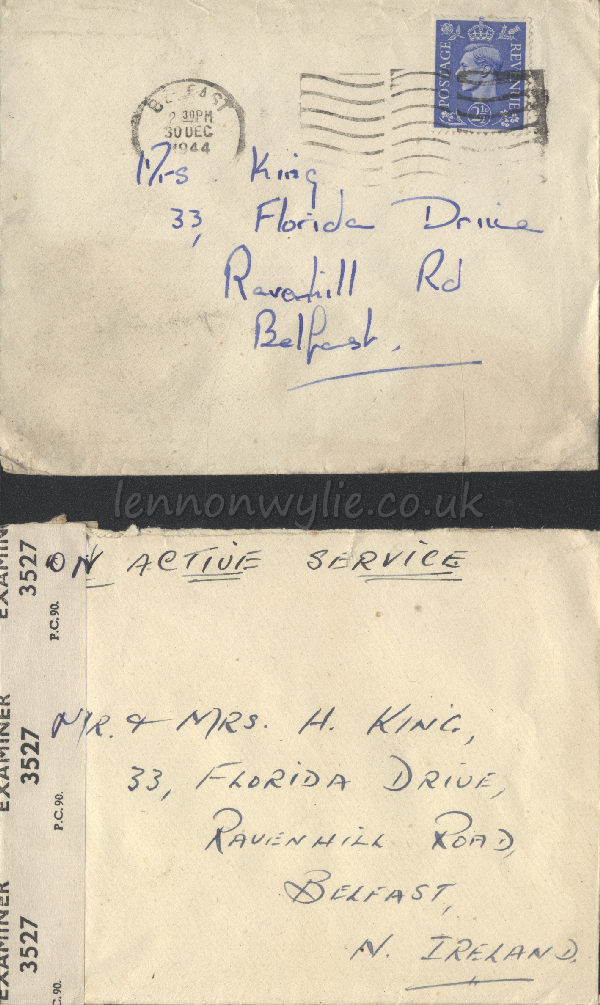 POSTAGE REVENUE
2½D
BELFAST
2 30PM
30 DEC
1944
Mrs King
33, Florida Drive
Ravenhill Rd
Belfast.
lennonwylie.co.uk
ON ACTIVE SERVICE
EXAMINER 3527
P.C. 90.
EXAMINER 3527
P.C. 90.
EXAMINER 3527
P.C. 90.
MR. & MRS. H. KING,
33, FLORIDA DRIVE,
RAVENHILL ROAD,
BELFAST,
N. IRELAND.